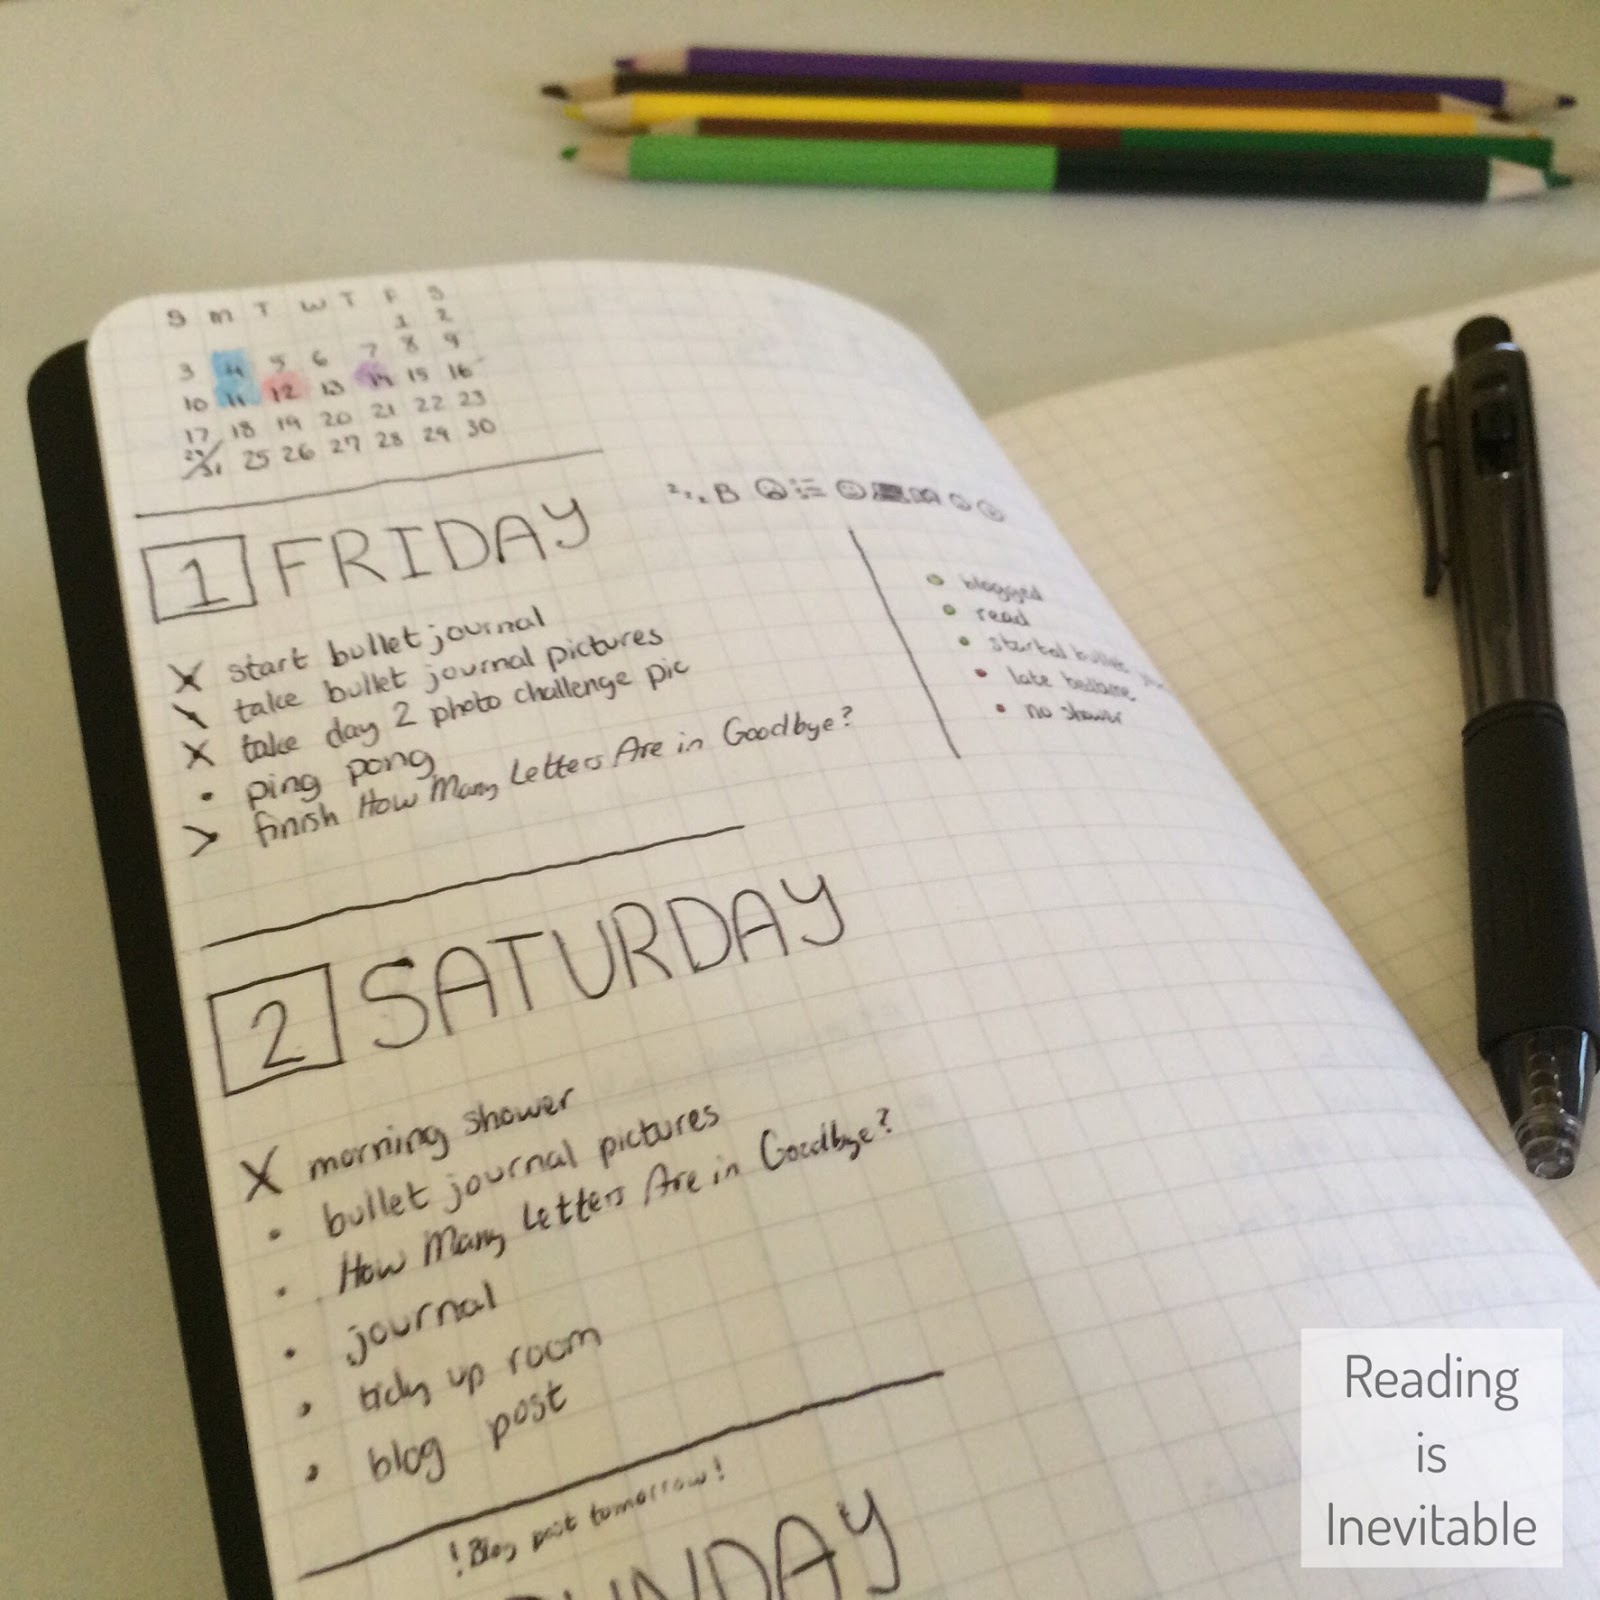 S M T W T F S
1 2
3 4 5 6 7 8 9
10 11 12 13 14 15 16
17 18 19 20 21 22 23
24/31 25 26 27 28 29 30
1 FRIDAY
zzz B
X start bullet journal
take bullet journal pictures
X take day 2 photo challenge pic
• ping pong
> finish How Many Letters Are in Goodbye?
• blogged
• read
• started bullet
• late bedtime
• no shower
2 SATURDAY
X morning shower
• bullet journal pictures
• How Many Letters Are in Goodbye?
• journal
• tidy up room
• blog post
! Blog post tomorrow!
SUNDAY
Reading
is
Inevitable